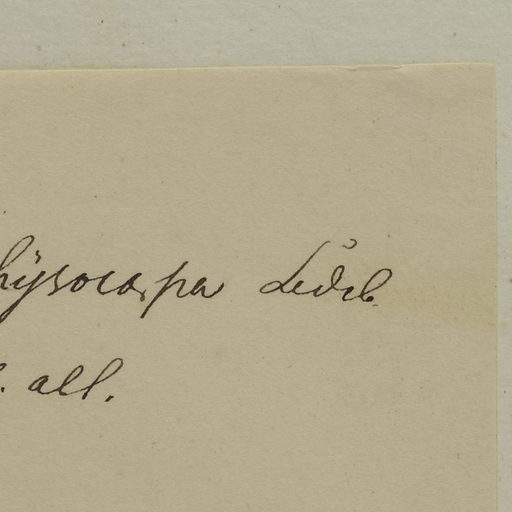 hÿsocarpa Ledeb.
. all.